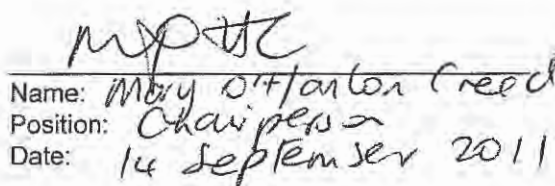 Name: Mary O'Hanlon Creed
Position: Chairperson
Date: 14 September 2011